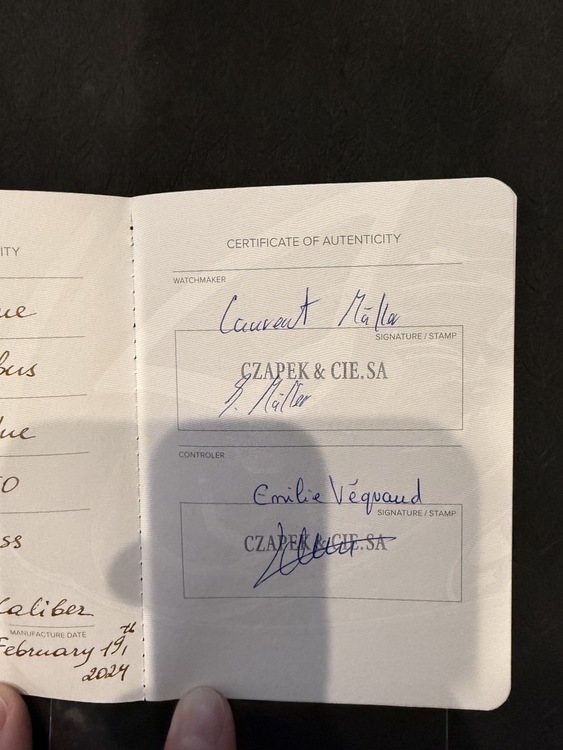 ITY
ue
bus
ue
O
ss
Caliber
MANUFACTURE DATE
February 19th,
2024
CERTIFICATE OF AUTENTICITY
WATCHMAKER
Laurent Müller
SIGNATURE / STAMP
CZAPEK & CIE.SA
Müller
CONTROLER
Emilie Véquaud
SIGNATURE / STAMP
CZAPEK & CIE.SA